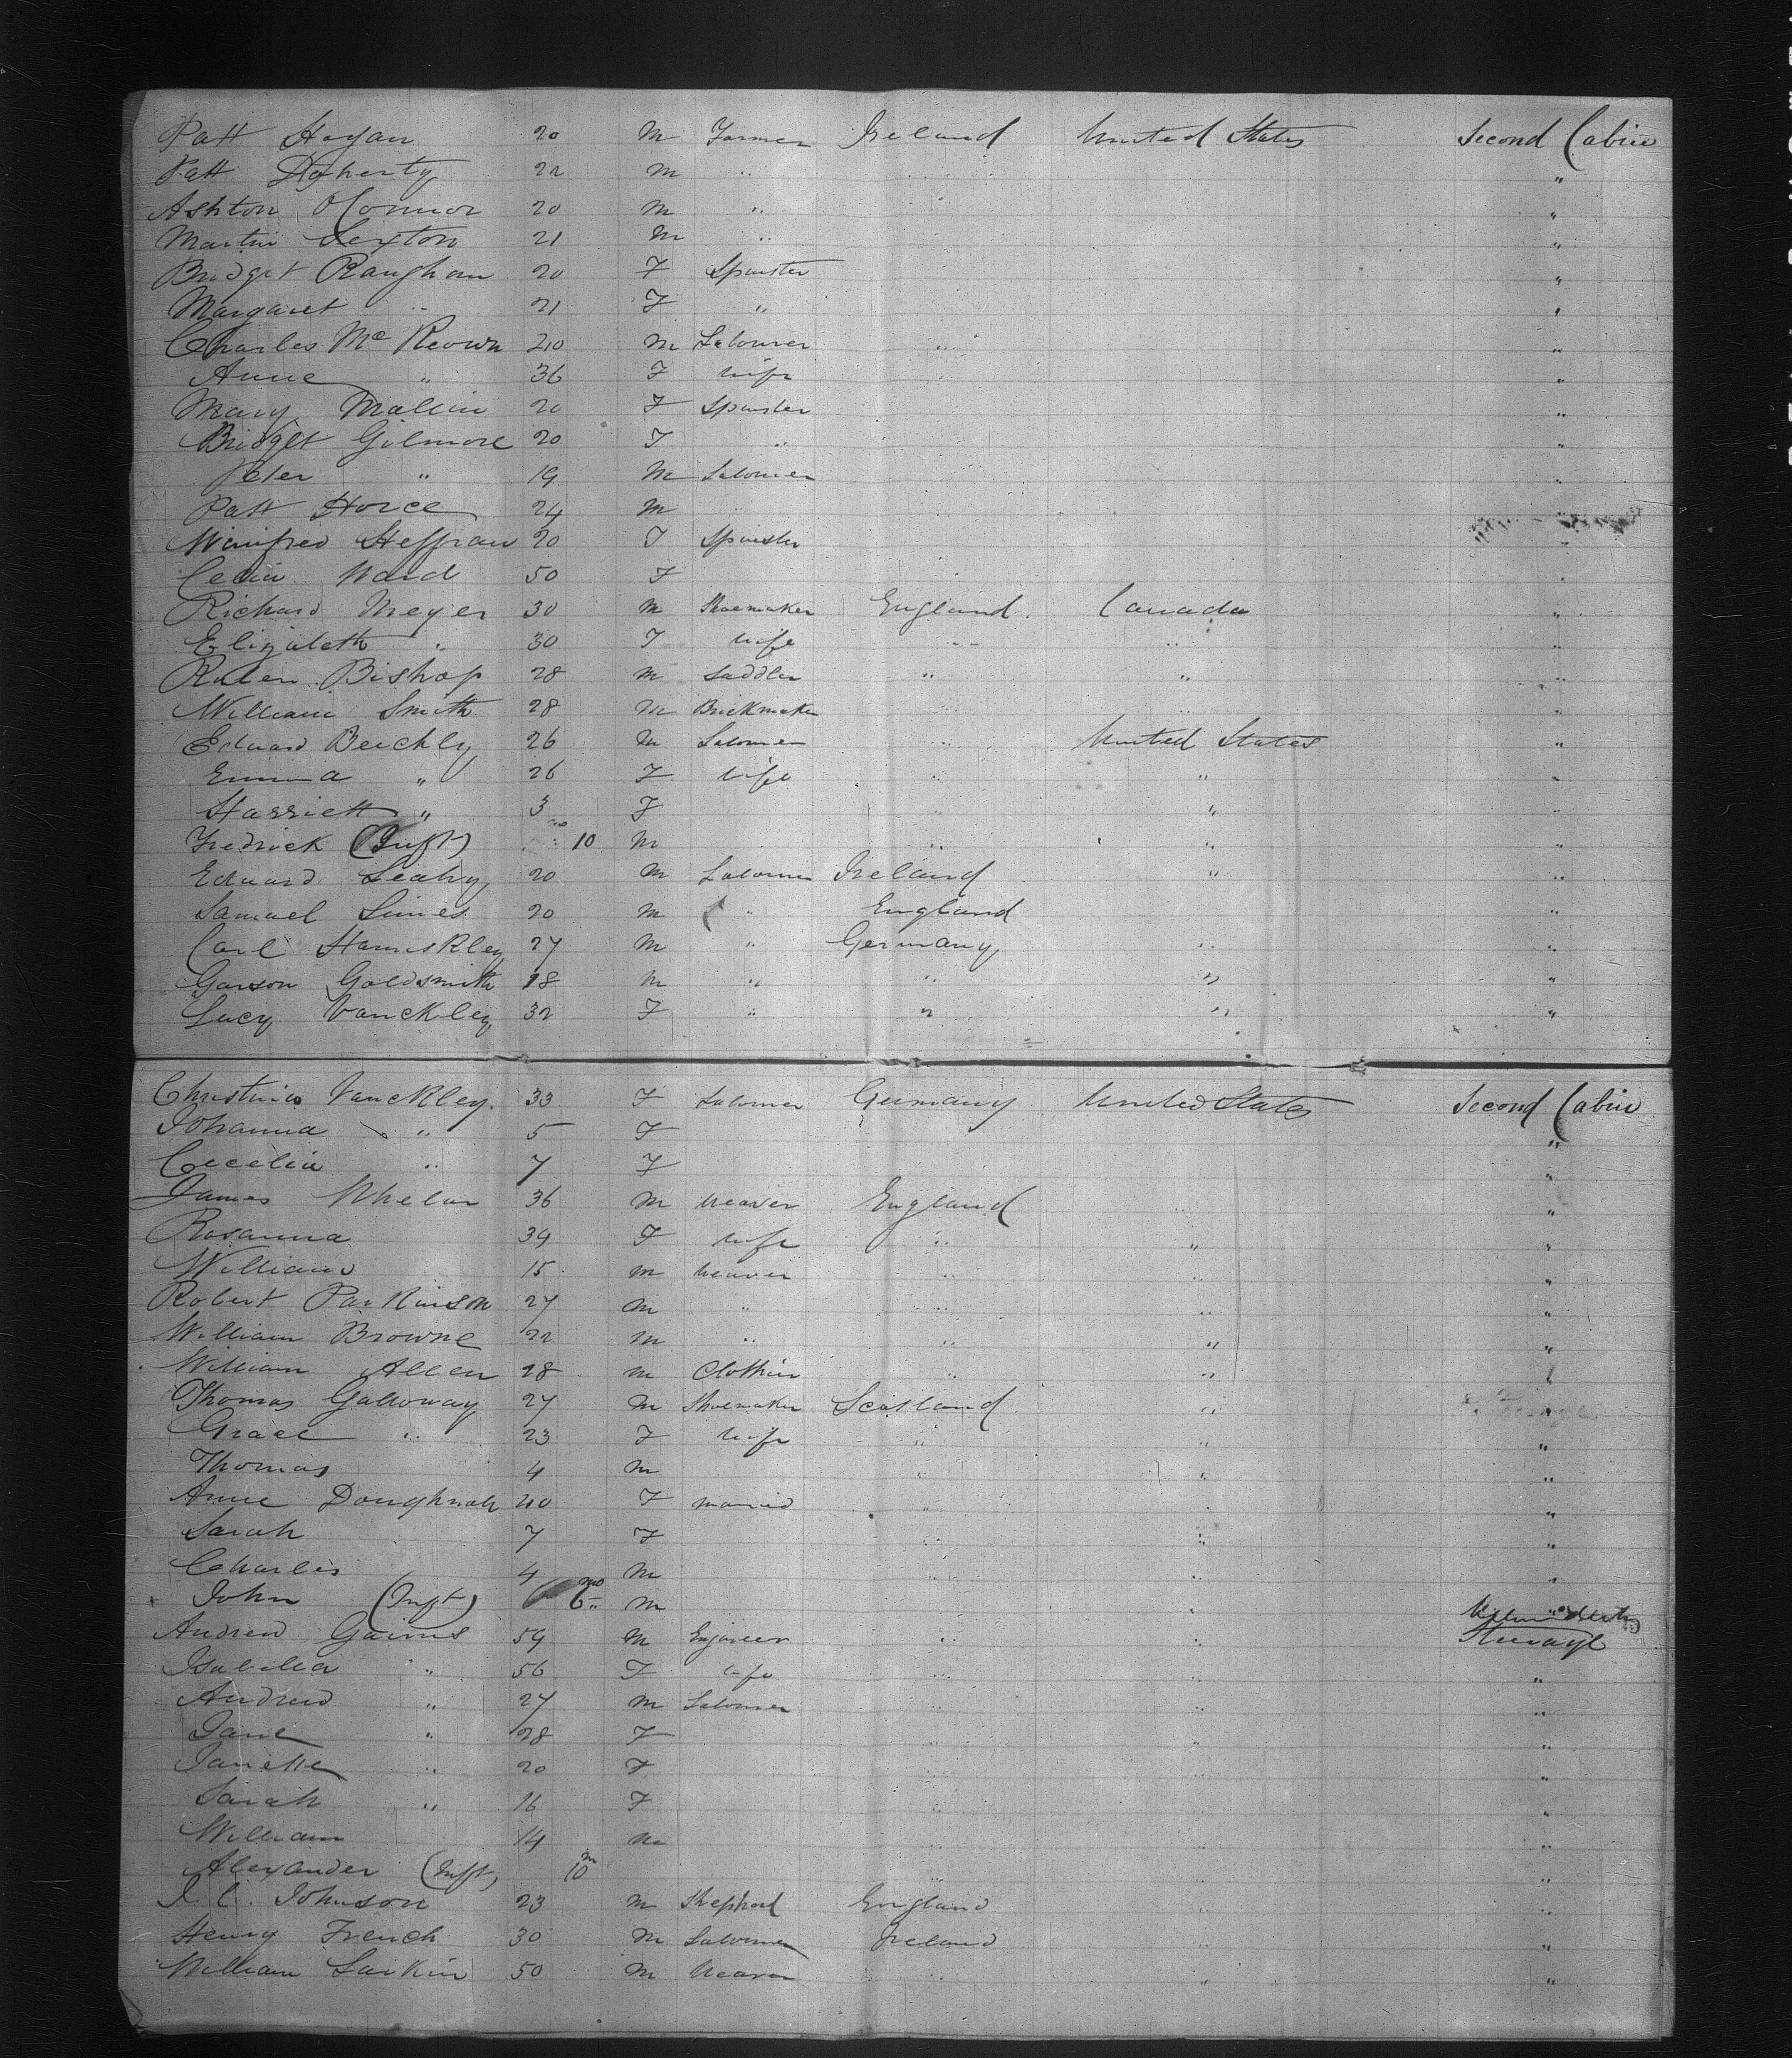 Patt Hogan 20 M Farmer Ireland United States Second Cabin
Patt Doherty 22 M " " "
Ashton O'Connor 20 M " "
Martin Sexton 21 M " "
Bridget Raughan 20 F Spinster "
Margaret " 21 F " "
Charles McKeown 40 M Labourer " "
Anne " 36 F wife " "
Mary Malin 20 F Spinster "
Bridget Gilmore 20 F " "
Peter " 19 M Labourer "
Patt 24 M "
Winifred Heffran 20 F Spinster "
Celia Ward 50 F "
Richard Meyer 30 M Shoemaker England Canada "
Elizabeth " 30 F wife " " "
Bishop 28 M Saddler " " "
William Smith 28 M Brickmaker " " "
Edward Beechly 26 M Labourer " United States "
Emma " 26 F wife " " "
Harriett " 3 F " " "
Fredrick (Inft) mo 10 M " " "
Edward Leahy 20 M Labourer Ireland " "
Samuel Simes 20 M " England "
Carl 27 M " Germany " "
Garson Goldsmith 18 M " " " "
Lucy Vanckley 32 F " " " "
Christina Vanckley 33 F Labourer Germany United States Second Cabin
Johanna " 5 F "
Cecelia " 7 F "
James Whelan 36 M weaver England " "
Rosanna 39 F wife " " "
William 15 M weaver " " "
Robert Parkinson 27 M " " " "
William Browne 22 M " " " "
William Allen 28 M Clothier " " "
Thomas Galloway 27 M Shoemaker Scotland " "
Grace " 23 F wife " " "
Thomas 4 M " " "
Anne 40 F married " " "
Sarah 7 F " " "
Charles 4 M " " "
John (Inft) 6 mo M "
Andrew Gairns 59 M Engineer " " Steerage
Isabella " 56 F wife " " "
Andrew " 27 M Labourer " " "
Jane " 28 F " " "
Janette " 20 F " " "
Sarah " 16 F " " "
William 14 M " " "
Alexander (Inft) 10 m " " "
J. C. Johnson 23 M Shepherd England " "
Henry French 30 M Labourer Ireland " "
William Larkin 50 M Weaver " " "